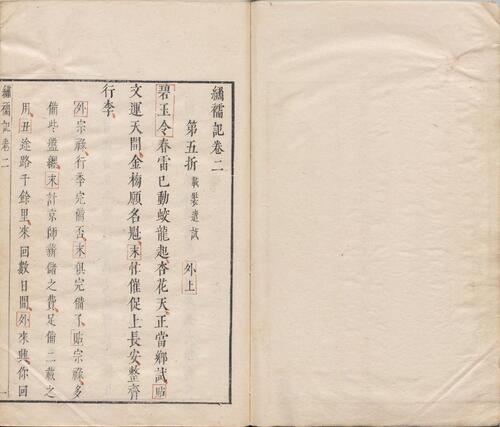 繡襦記卷二
第五折 載裝遣試 外上
碧玉令春雷已動蛟龍起杏花天正當鄉試貼
文運天開金榜願名魁末忙催促上長安整齊
行李
外宗祿行李完備否末俱完備了貼宗祿多
備些盤纏末計京師薪儲之費足備二載之
用丑途路千餘里來回數日間外來興你回
繡襦記卷二
一